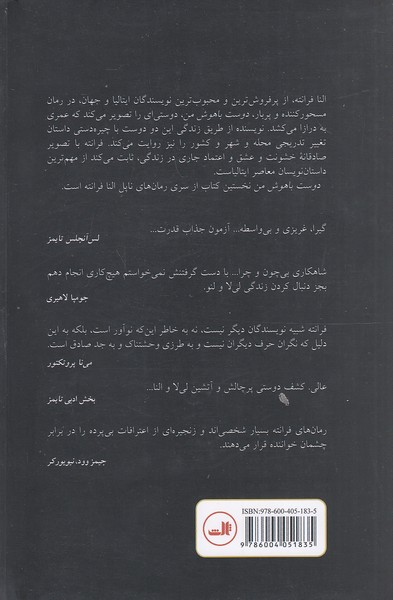 النا فرانته، از پرفروش‌ترین و محبوب‌ترین نویسندگان ایتالیا و جهان، در رمان
مسحورکننده و پربار، دوست باهوش من، دوستی‌ای را تصویر می‌کند که عمری
به درازا می‌کشد. نویسنده از طریق زندگی این دو دوست با چیره‌دستی داستان
تغییر تدریجی محله و شهر و کشور را نیز روایت می‌کند. فرانته با تصویر
صادقانهٔ خشونت و عشق و اعتماد جاری در زندگی، ثابت می‌کند از مهم‌ترین
داستان‌نویسان معاصر ایتالیاست.
دوست باهوش من نخستین کتاب از سری رمان‌های ناپل النا فرانته است.
گیرا، غریزی و بی‌واسطه... آزمون جذاب قدرت...
لس‌آنجلس تایمز
شاهکاری بی‌چون و چرا... با دست گرفتنش نمی‌خواستم هیچ‌کاری انجام دهم
بجز دنبال کردن زندگی لی‌لا و لنو.
جومپا لاهیری
فرانته شبیه نویسندگان دیگر نیست، نه به خاطر این‌که نوآور است، بلکه به این
دلیل که نگران حرف دیگران نیست و به طرزی وحشتناک و به جد صادق است.
می‌نا پروتکتور
عالی. کشف دوستی پرچالش و آتشین لی‌لا و النا...
بخش ادبی تایمز
رمان‌های فرانته بسیار شخصی‌اند و زنجیره‌ای از اعترافات بی‌پرده را در برابر
چشمان خواننده قرار می‌دهند.
جیمز وود، نیویورکر
ISBN:978-600-405-183-5
ثالث
9 786004 051835